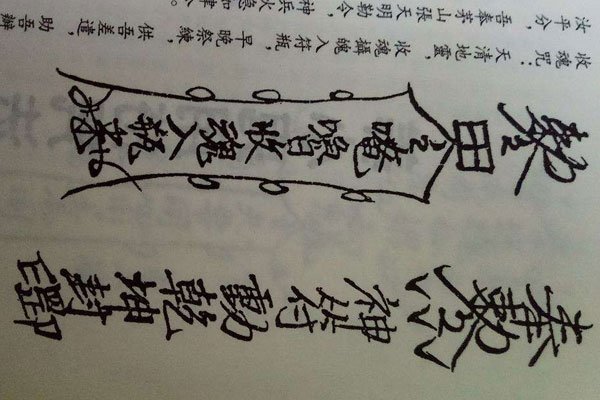 奉勅令神符動乾坤封印
唵嚕收魂入瓶
收魂咒：天清地靈，收魂攝魄入符瓶，早晚祭練，供吾差遣，助吾辦
汝平分，吾奉茅山張天明勅令，神兵火急如律令